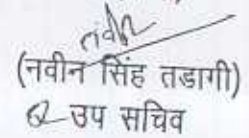 (नवीन सिंह तडागी)
उप सचिव